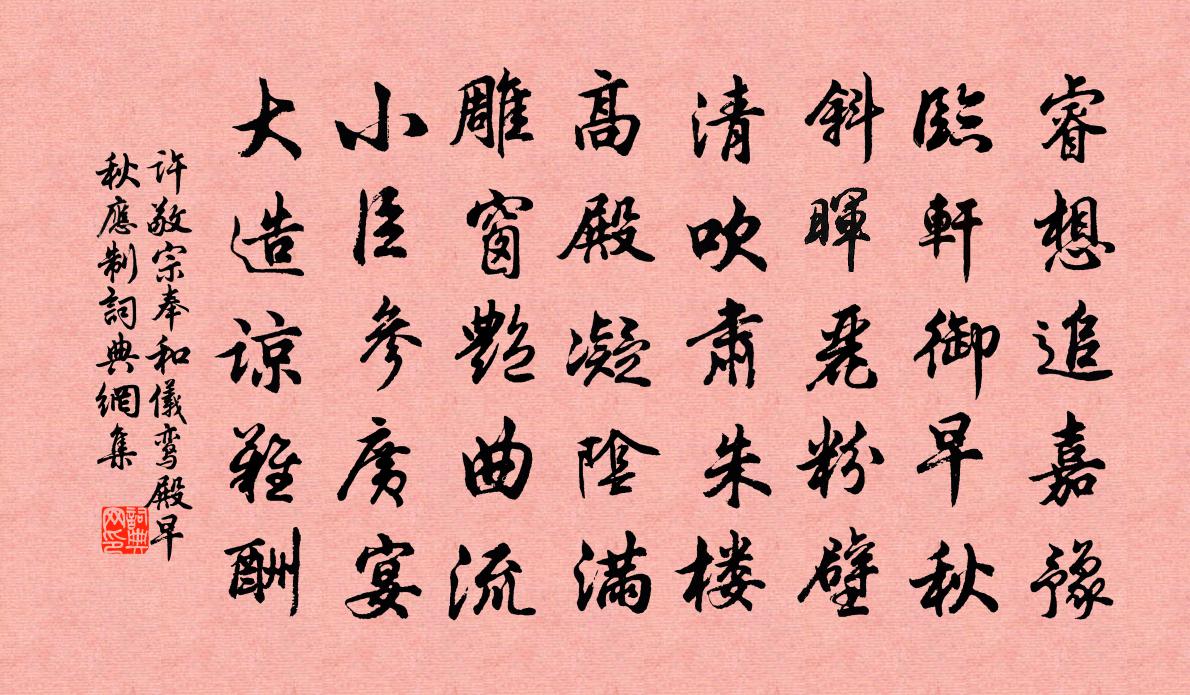 睿想追嘉豫
臨軒御早秋
斜暉麗粉壁
清吹肅朱楼
高殿凝陰满
雕窗艷曲流
小臣參廣宴
大造谅難酬
许敬宗奉和儀鸾殿早
秋應制詞典網集
詞典网印